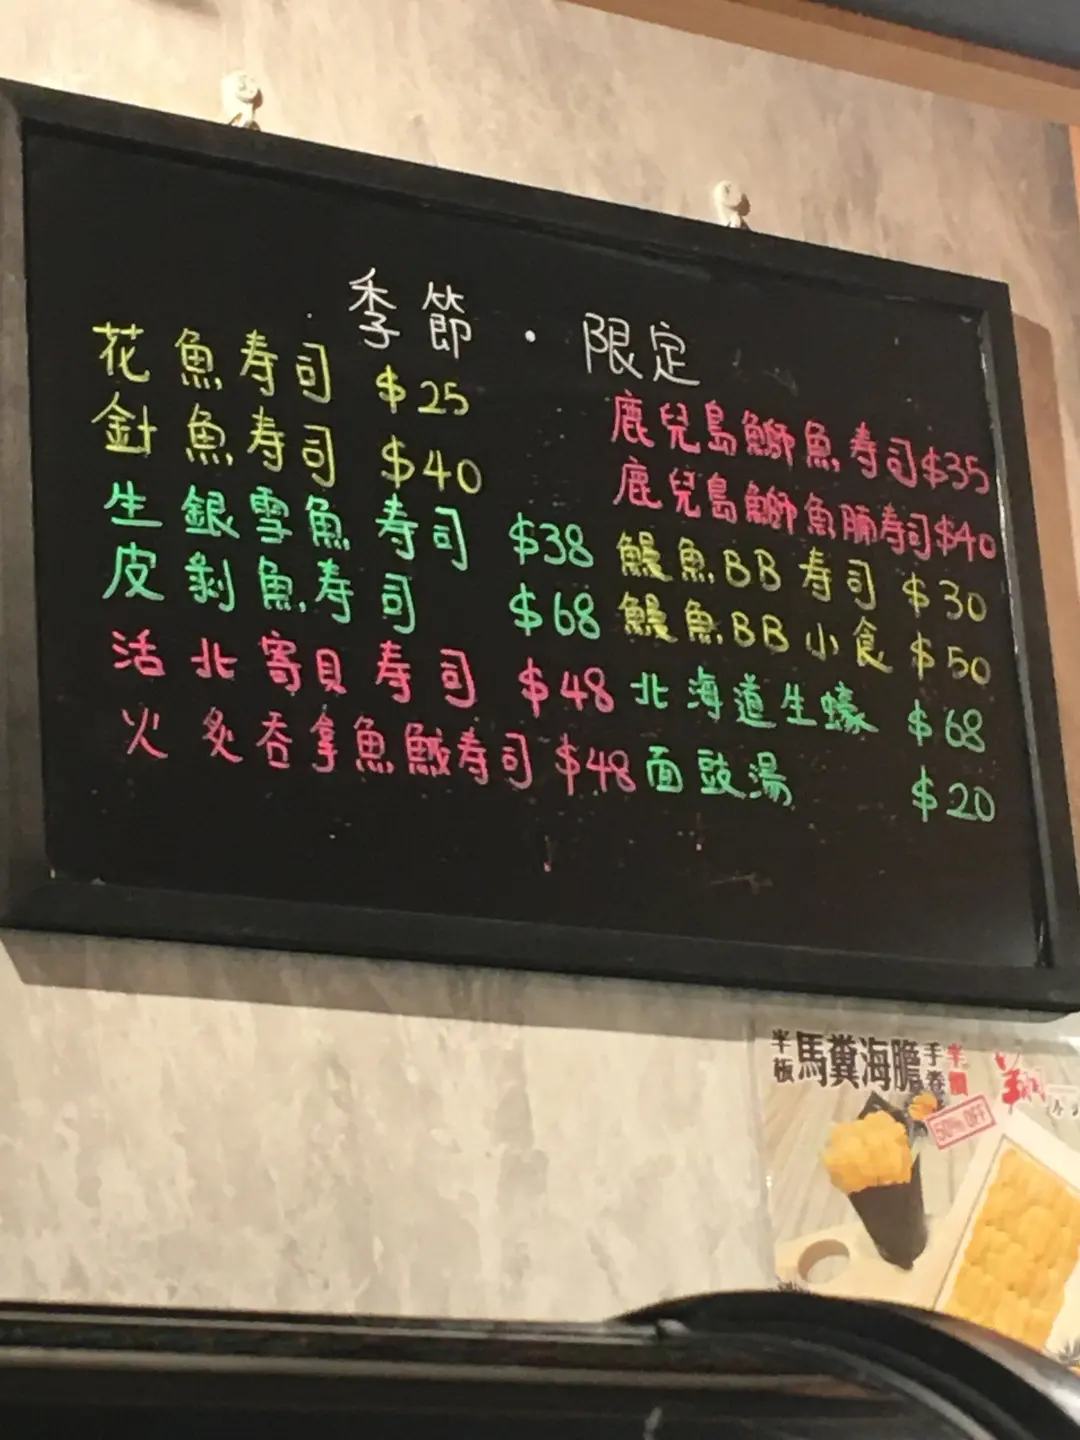 季節・限定
花魚寿司 $25
針魚寿司 $40
生銀雪魚寿司 $38
皮剝魚寿司 $68
活北寄貝寿司 $48
火炙吞拿魚鰄寿司 $48
鹿兒島鰤魚寿司 $35
鹿兒島鰤魚腩寿司 $40
鰻魚BB寿司 $30
鰻魚BB小食 $50
北海道生蠔 $68
面豉湯 $20
半板馬糞海膽手卷半價
50% OFF